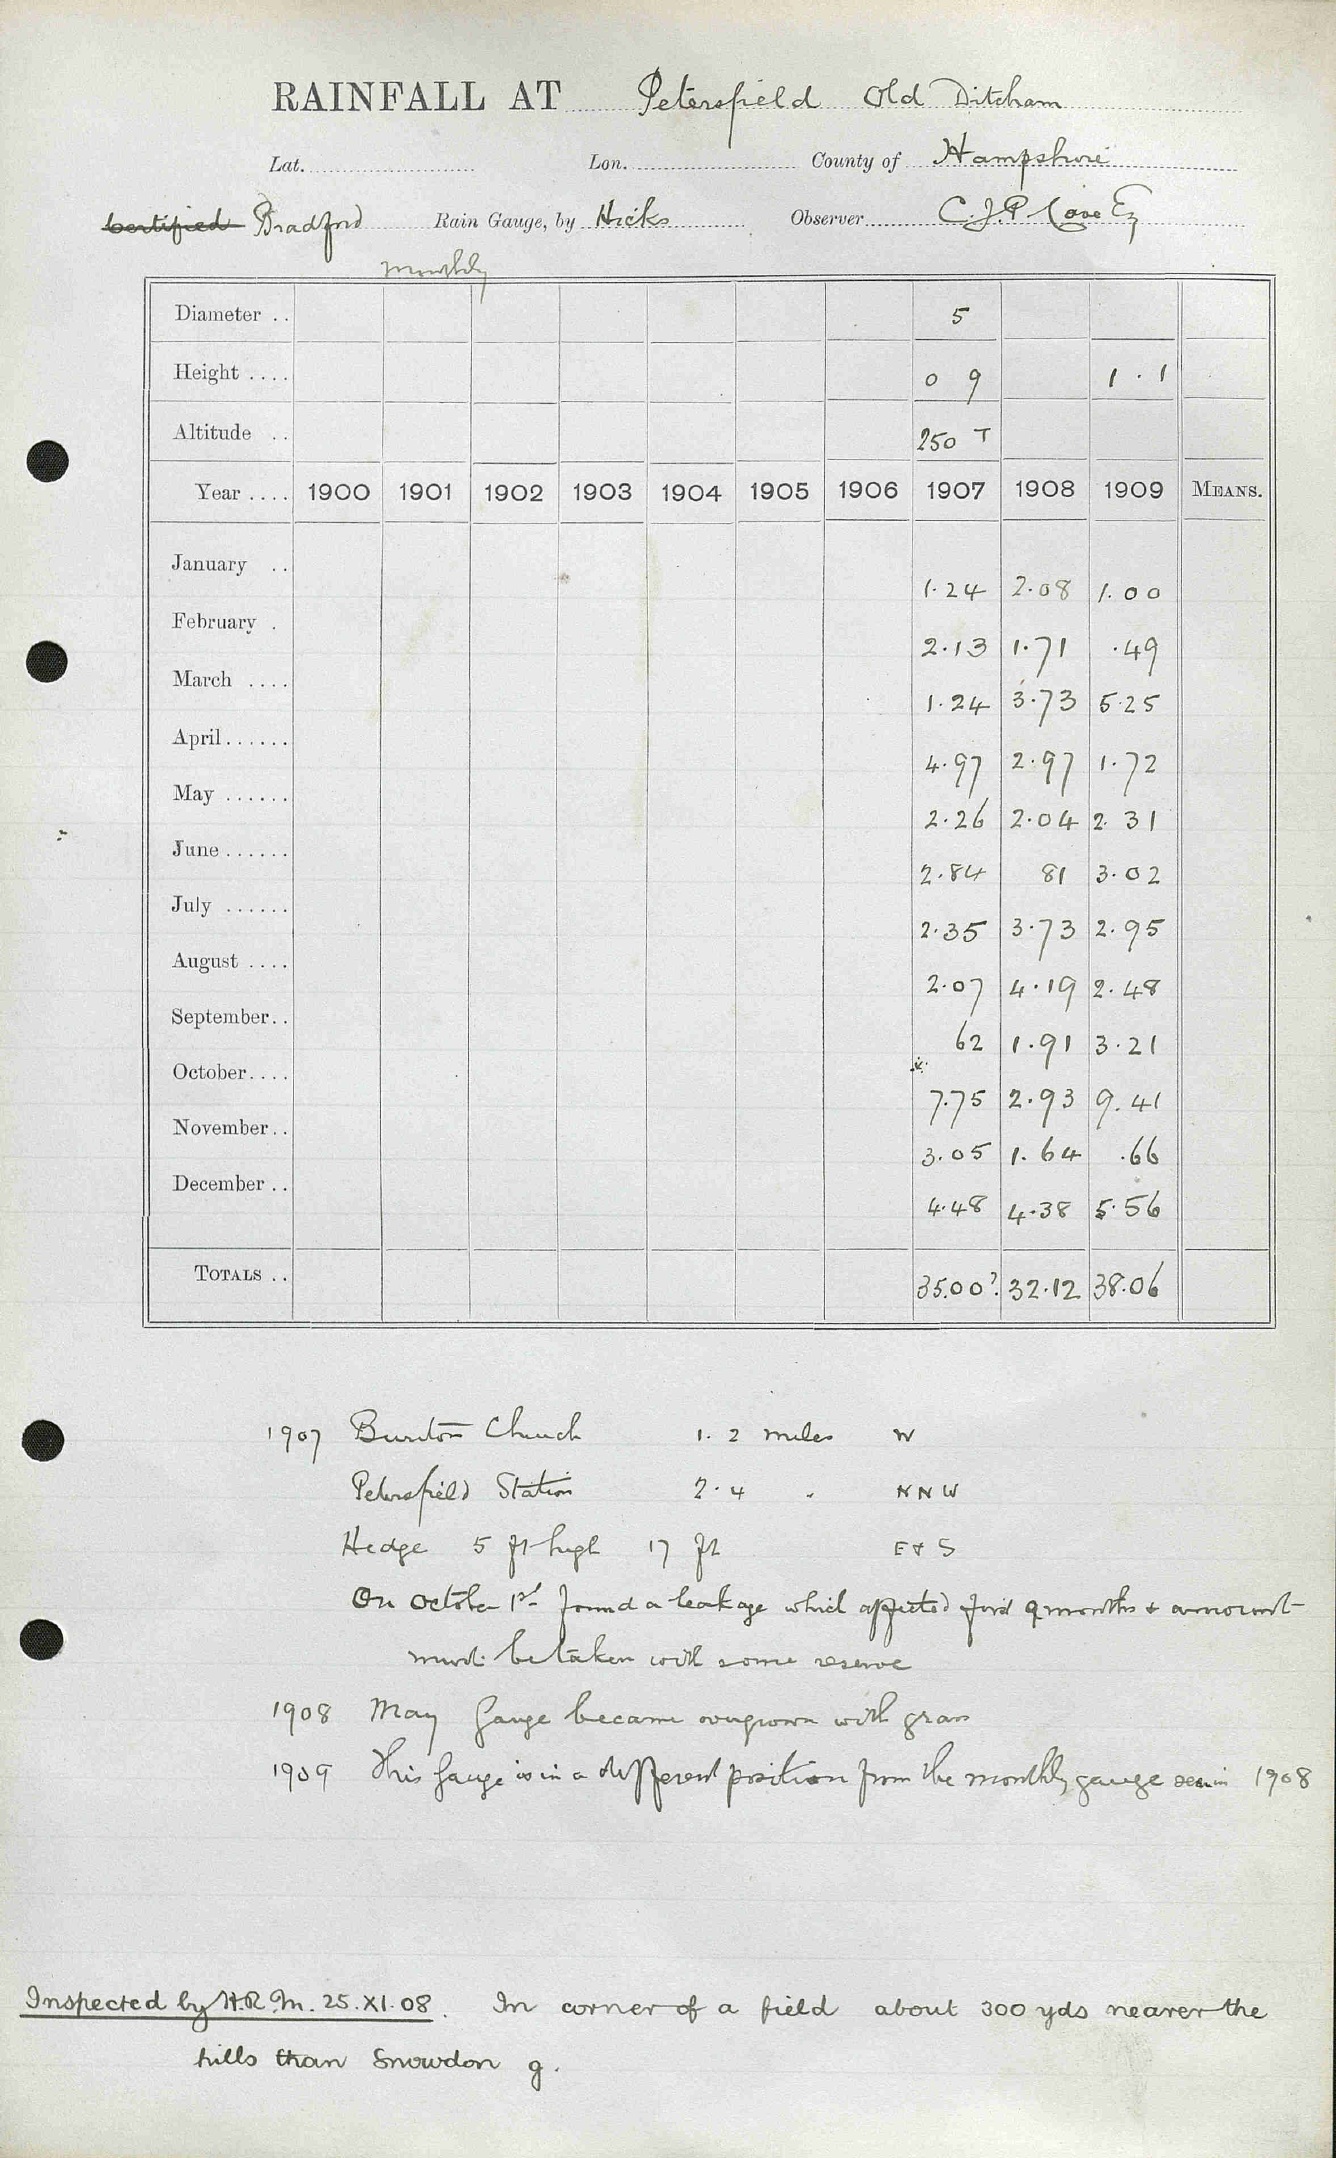 RAINFALL AT Petersfield Old Ditcham
Lat. Lon. County of Hampshire
Certified Bradford Rain Gauge, by Hicks Observer C.J.P. Cave Esq
monthly
Diameter .. 5
Height .... 0 9 1 . 1
Altitude .. 250 T
Year .... 1900 1901 1902 1903 1904 1905 1906 1907 1908 1909 MEANS.
January .. 1.24 2.08 1.00
February . 2.13 1.71 .49
March .... 1.24 3.73 5.25
April...... 4.97 2.97 1.72
May ...... 2.26 2.04 2.31
June...... 2.84 81 3.02
July ...... 2.35 3.73 2.95
August .... 2.07 4.19 2.48
September.. 62 1.91 3.21
October.... 7.75 2.93 9.41
November.. 3.05 1.64 .66
December .. 4.48 4.38 5.56
TOTALS .. 35.00?. 32.12 38.06
1907 Buriton Church 1.2 miles W
Petersfield Station 2.4 " NNW
Hedge 5 ft high 17 ft E & S
On October 1st found a leakage which affected first 9 months & amount
must be taken with some reserve
1908 May Gauge became overgrown with grass
1909 This gauge is in a different position from the monthly gauge in 1908
Inspected by H.R.M. 25.XI.08. In corner of a field about 300 yds nearer the
hills than Snowdon g.